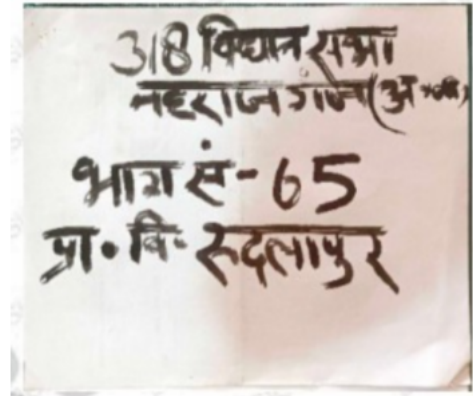 318 विधान सभा
महराज गंज (अ०
भाग सं-65
प्रा॰ वि॰ रूदलापुर